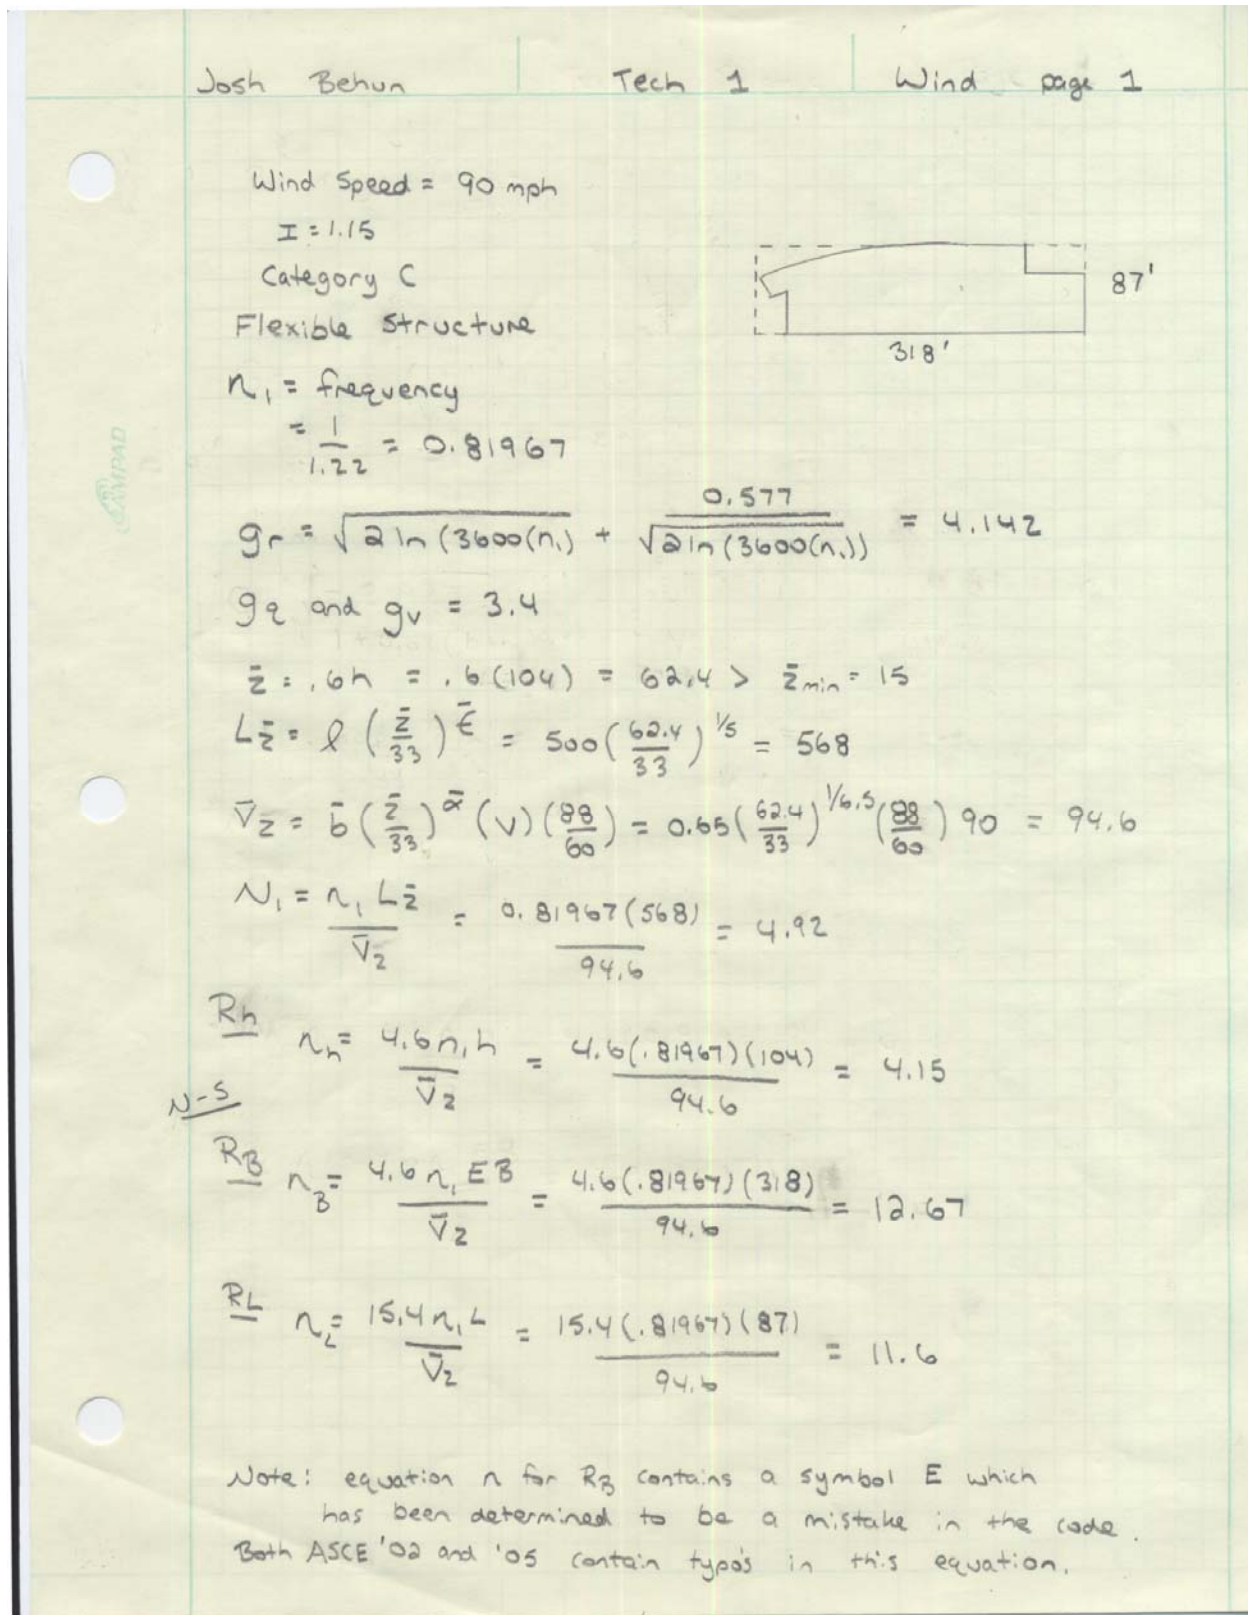 Josh Behun Tech 1 Wind page 1
Wind Speed = 90 mph
I = 1.15
Category C
87'
Flexible Structure
318'
n₁ = frequency
= 1/1.22 = 0.81967
AMPAD
gr = √2ln(3600(n₁) + 0.577/√2ln(3600(n₁)) = 4.142
gq and gv = 3.4
z̄ = .6h = .6(104) = 62.4 > z̄min = 15
Lz̄ = ℓ(z̄/33)^ε̄ = 500(62.4/33)^1/5 = 568
V̄z = b̄(z̄/33)^ᾱ (V)(88/60) = 0.65(62.4/33)^1/6.5 (88/60) 90 = 94.6
N₁ = n₁Lz̄/V̄z = 0.81967(568)/94.6 = 4.92
Rh
nh = 4.6n₁h/V̄z = 4.6(.81967)(104)/94.6 = 4.15
N-S
RB
nB = 4.6n₁EB/V̄z = 4.6(.81967)(318)/94.6 = 12.67
RL
nL = 15.4n₁L/V̄z = 15.4(.81967)(87)/94.6 = 11.6
Note: equation n for RB contains a symbol E which
has been determined to be a mistake in the code.
Both ASCE '02 and '05 contain typo's in this equation.